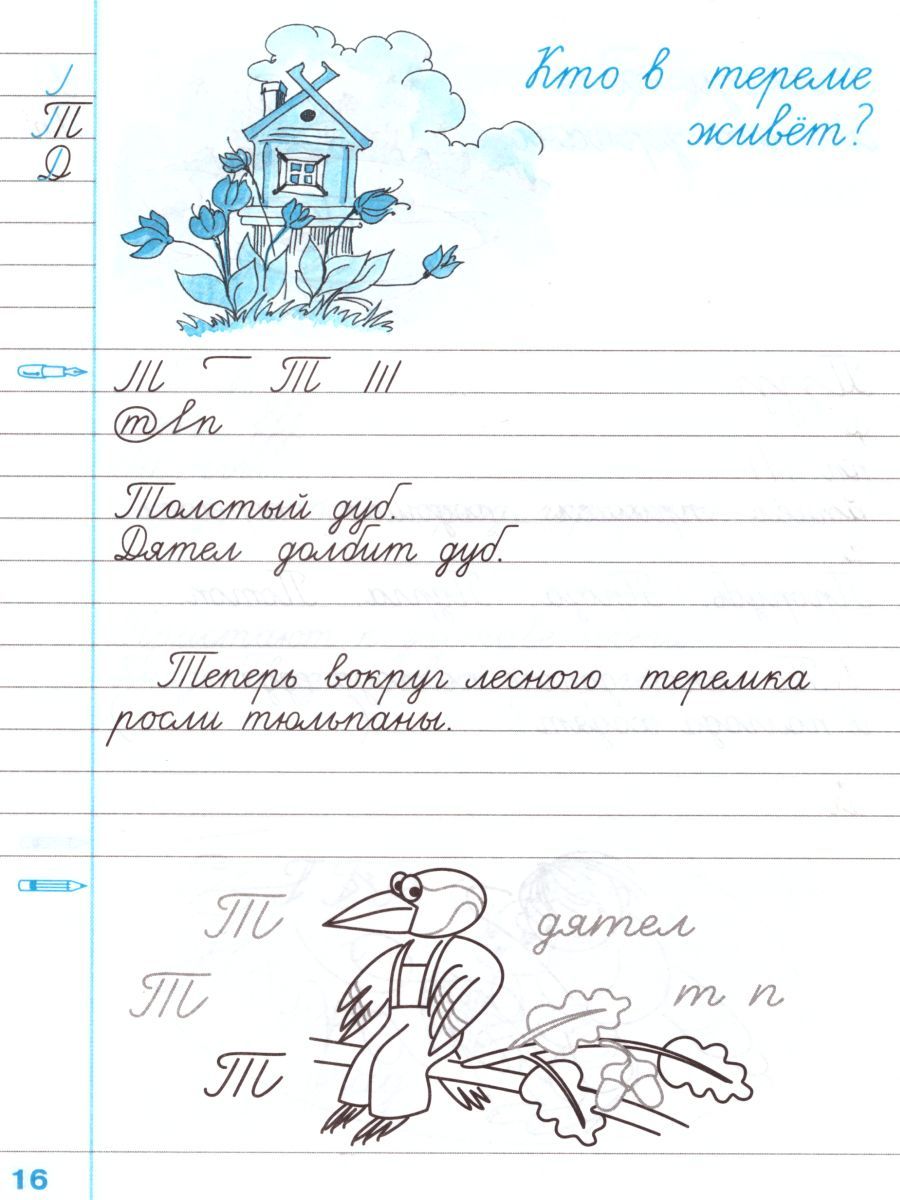 Кто в тереме
живёт?
Т
Д
Т Т
т л п
Толстый дуб.
Дятел долбит дуб.
Теперь вокруг лесного теремка
росли тюльпаны.
Т дятел
Т т п
Т
16